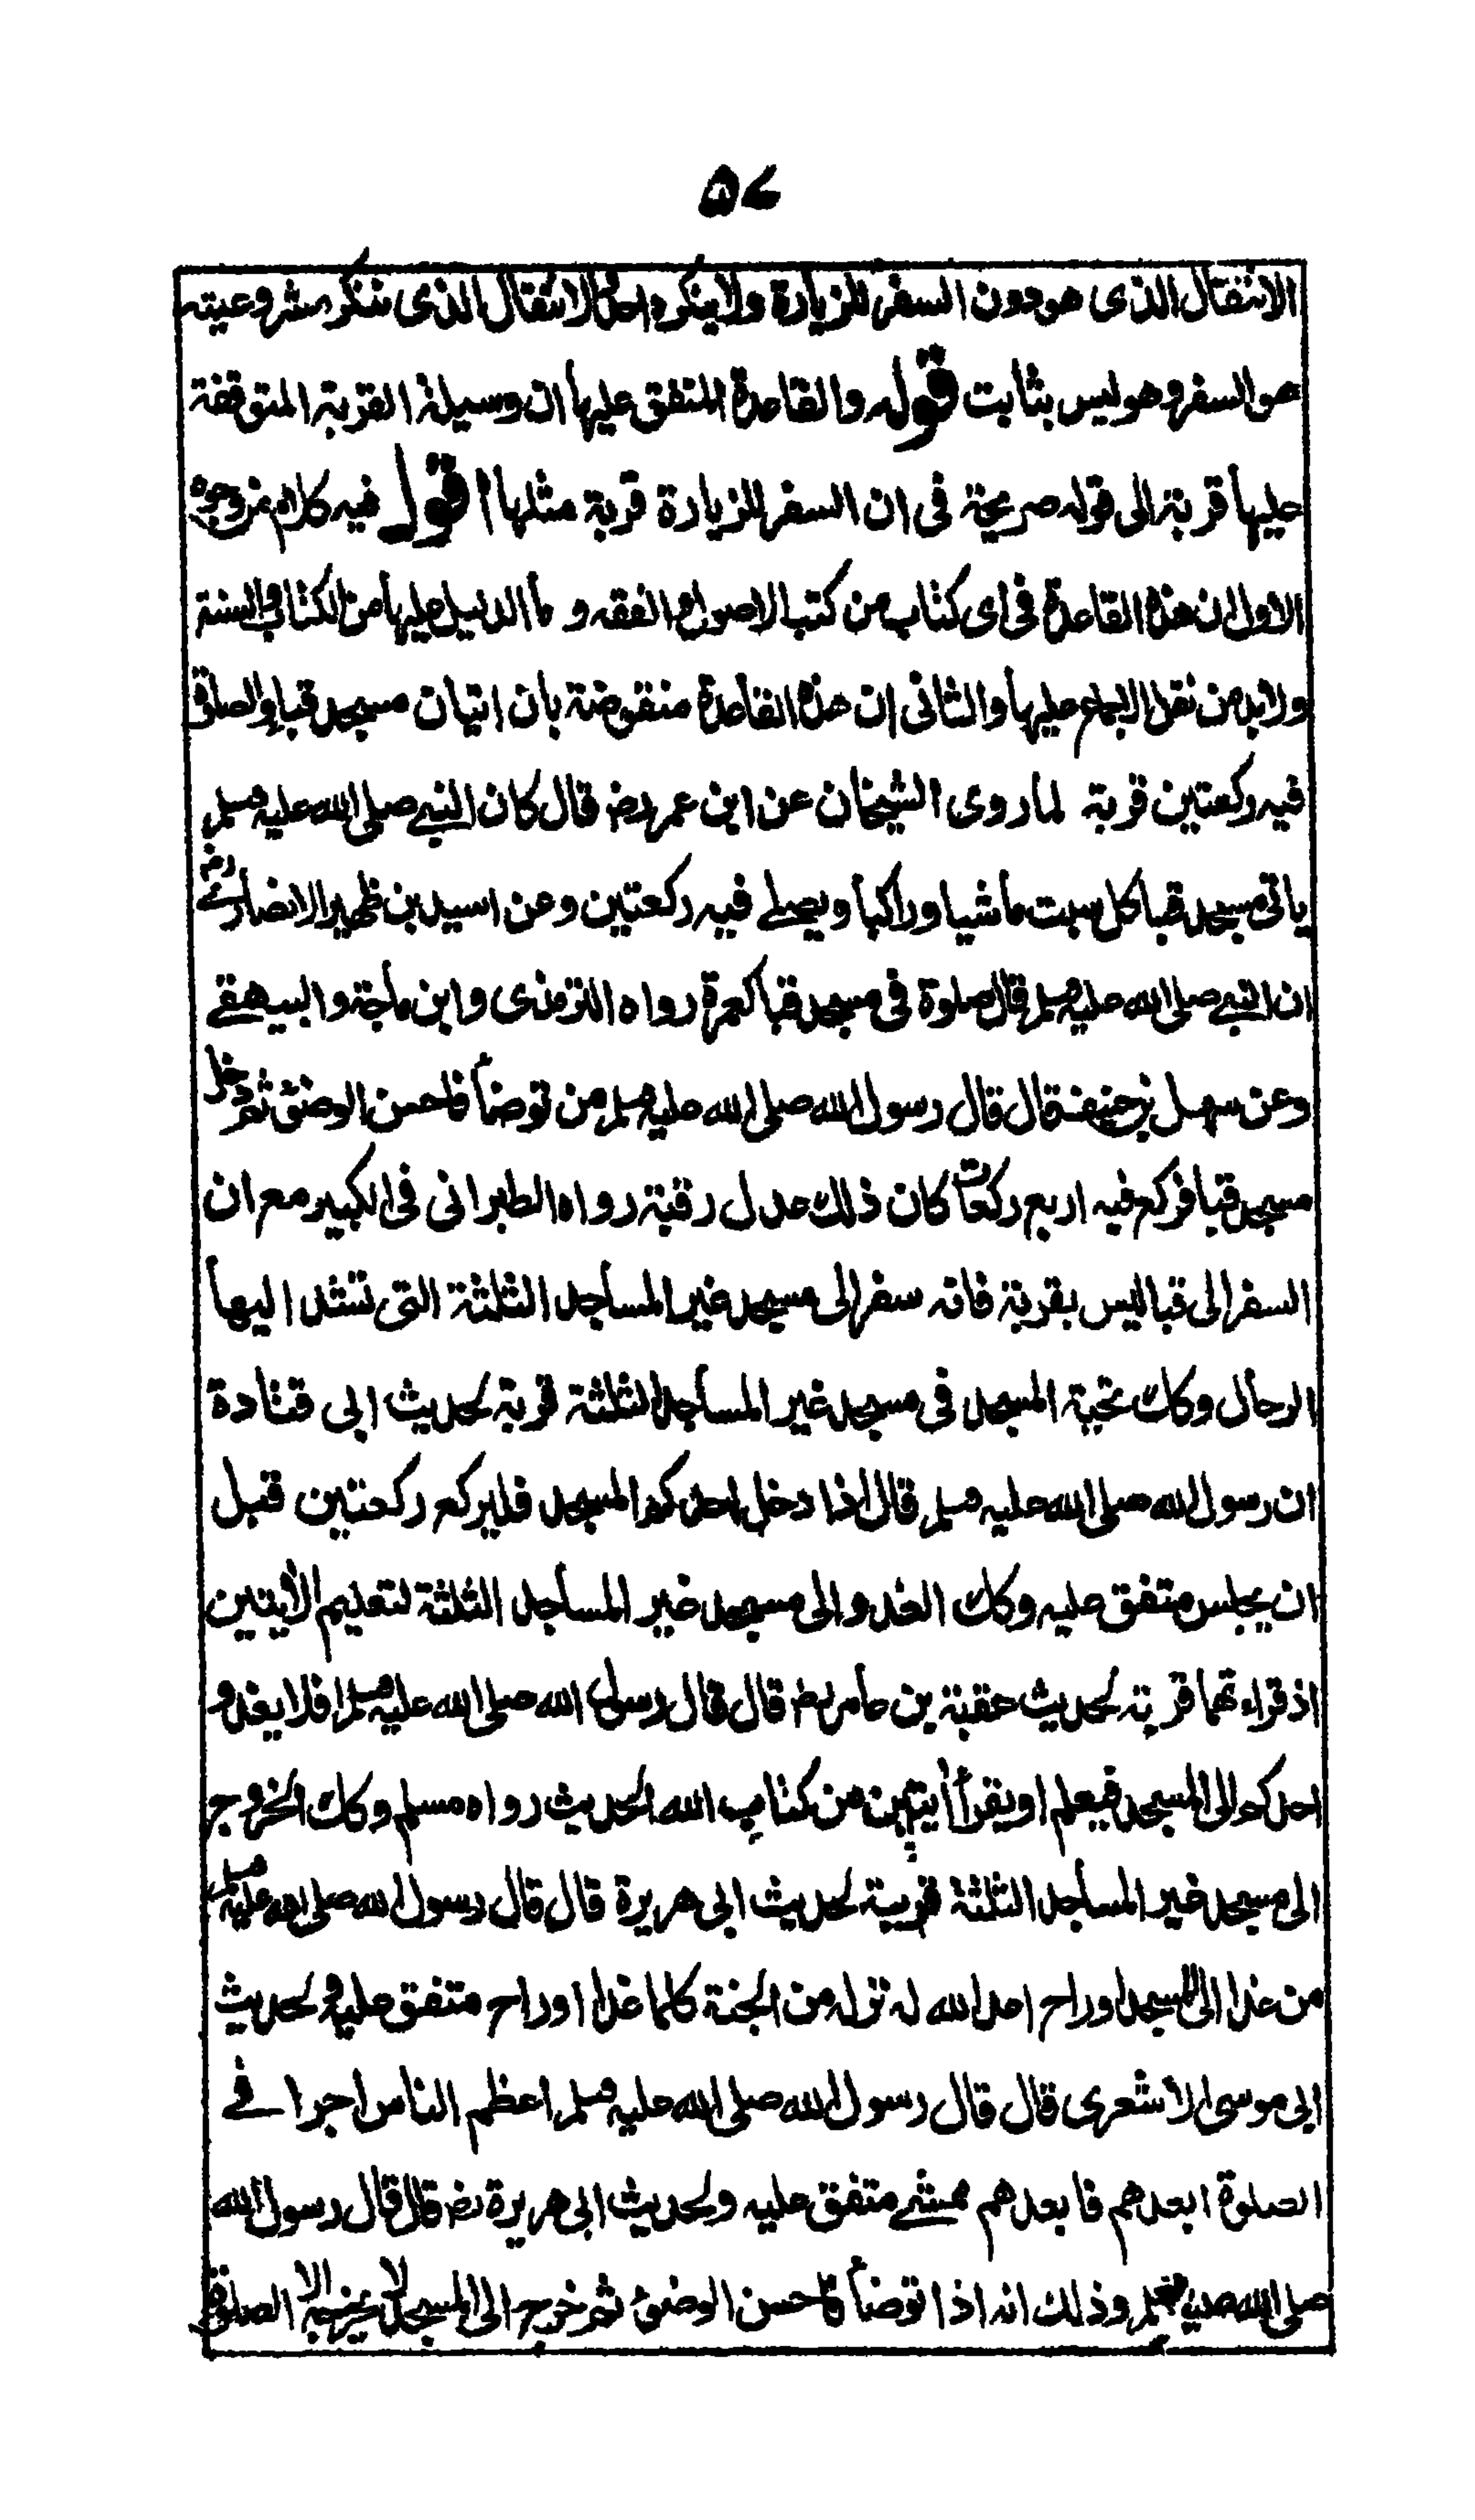 ۵۷
الانتقال الذى هو دون السفر للزيارة ولا ينكره احد والانتقال الذى ننكر مشروعيته
هو السفر وهو ليس بثابت قوله والقاعدة المتفق عليها ان وسيلة القربة المتوقفة
عليها قربة الى قوله صريحة فى ان السفر للزيارة قربة مثلها اقول فيه كلام من وجوه
الاول ان هذه القاعدة فى اى كتاب من كتب الاصول والفقه و ما الدليل عليها من الكتاب والسنة
ولا بد من نقل الاجماع عليها والثانى ان هذه القاعدة منقوضة بان اتيان مسجد قبا والصلوة
فيه ركعتين قربة لما روى الشيخان عن ابن عمر رض قال كان النبى صلى الله عليه وسلم
ياتى مسجد قبا كل سبت ماشيا وراكبا ويصلى فيه ركعتين وعن اسيد بن ظهير الانصارى رض
ان النبى صلى الله عليه وسلم قال الصلوة فى مسجد قبا كعمرة رواه الترمذى وابن ماجة والبيهقى
وعن سهل بن حنيف قال قال رسول الله صلى الله عليه وسلم من توضأ فاحسن الوضوء ثم دخل
مسجد قبا فركع فيه اربع ركعات كان ذلك عدل رقبة رواه الطبرانى فى الكبير مع ان
السفر الى قبا ليس بقربة فانه سفر الى مسجد غير المساجد الثلثة التى تشد اليها
الرحال وكك تحية المسجد فى مسجد غير المساجد الثلثة قربة لحديث ابى قتادة
ان رسول الله صلى الله عليه وسلم قال اذا دخل احدكم المسجد فليركع ركعتين قبل
ان يجلس متفق عليه وكك الغدو الى مسجد غير المساجد الثلثة لتعليم الأيتين
اذ قراءتهما قربة لحديث عقبة بن عامر رض قال قال رسول الله صلى الله عليه وسلم افلا يغدو
احدكم الى المسجد فيعلم او يقرأ أيتين من كتاب الله الحديث رواه مسلم وكك الخروج
الى مسجد غير المساجد الثلثة قربة لحديث ابى هريرة قال قال رسول الله صلى الله عليه وسلم
من غدا الى المسجد او راح اعد الله له نزله من الجنة كلما غدا او راح متفق عليه ولحديث
ابى موسى الاشعرى قال قال رسول الله صلى الله عليه وسلم اعظم الناس اجرا فى
الصلوة ابعدهم فابعدهم ممشى متفق عليه ولحديث ابى هريرة رض قال قال رسول الله
صلى الله عليه وسلم وذلك انه اذا توضأ فاحسن الوضوء ثم خرج الى المسجد لا يخرجه الا الصلوة